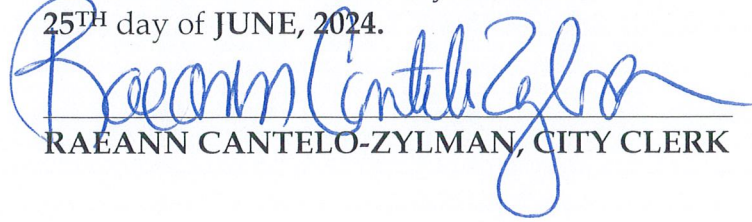 25TH day of JUNE, 2024.
Raeann Cantelo-Zylman
RAEANN CANTELO-ZYLMAN, CITY CLERK